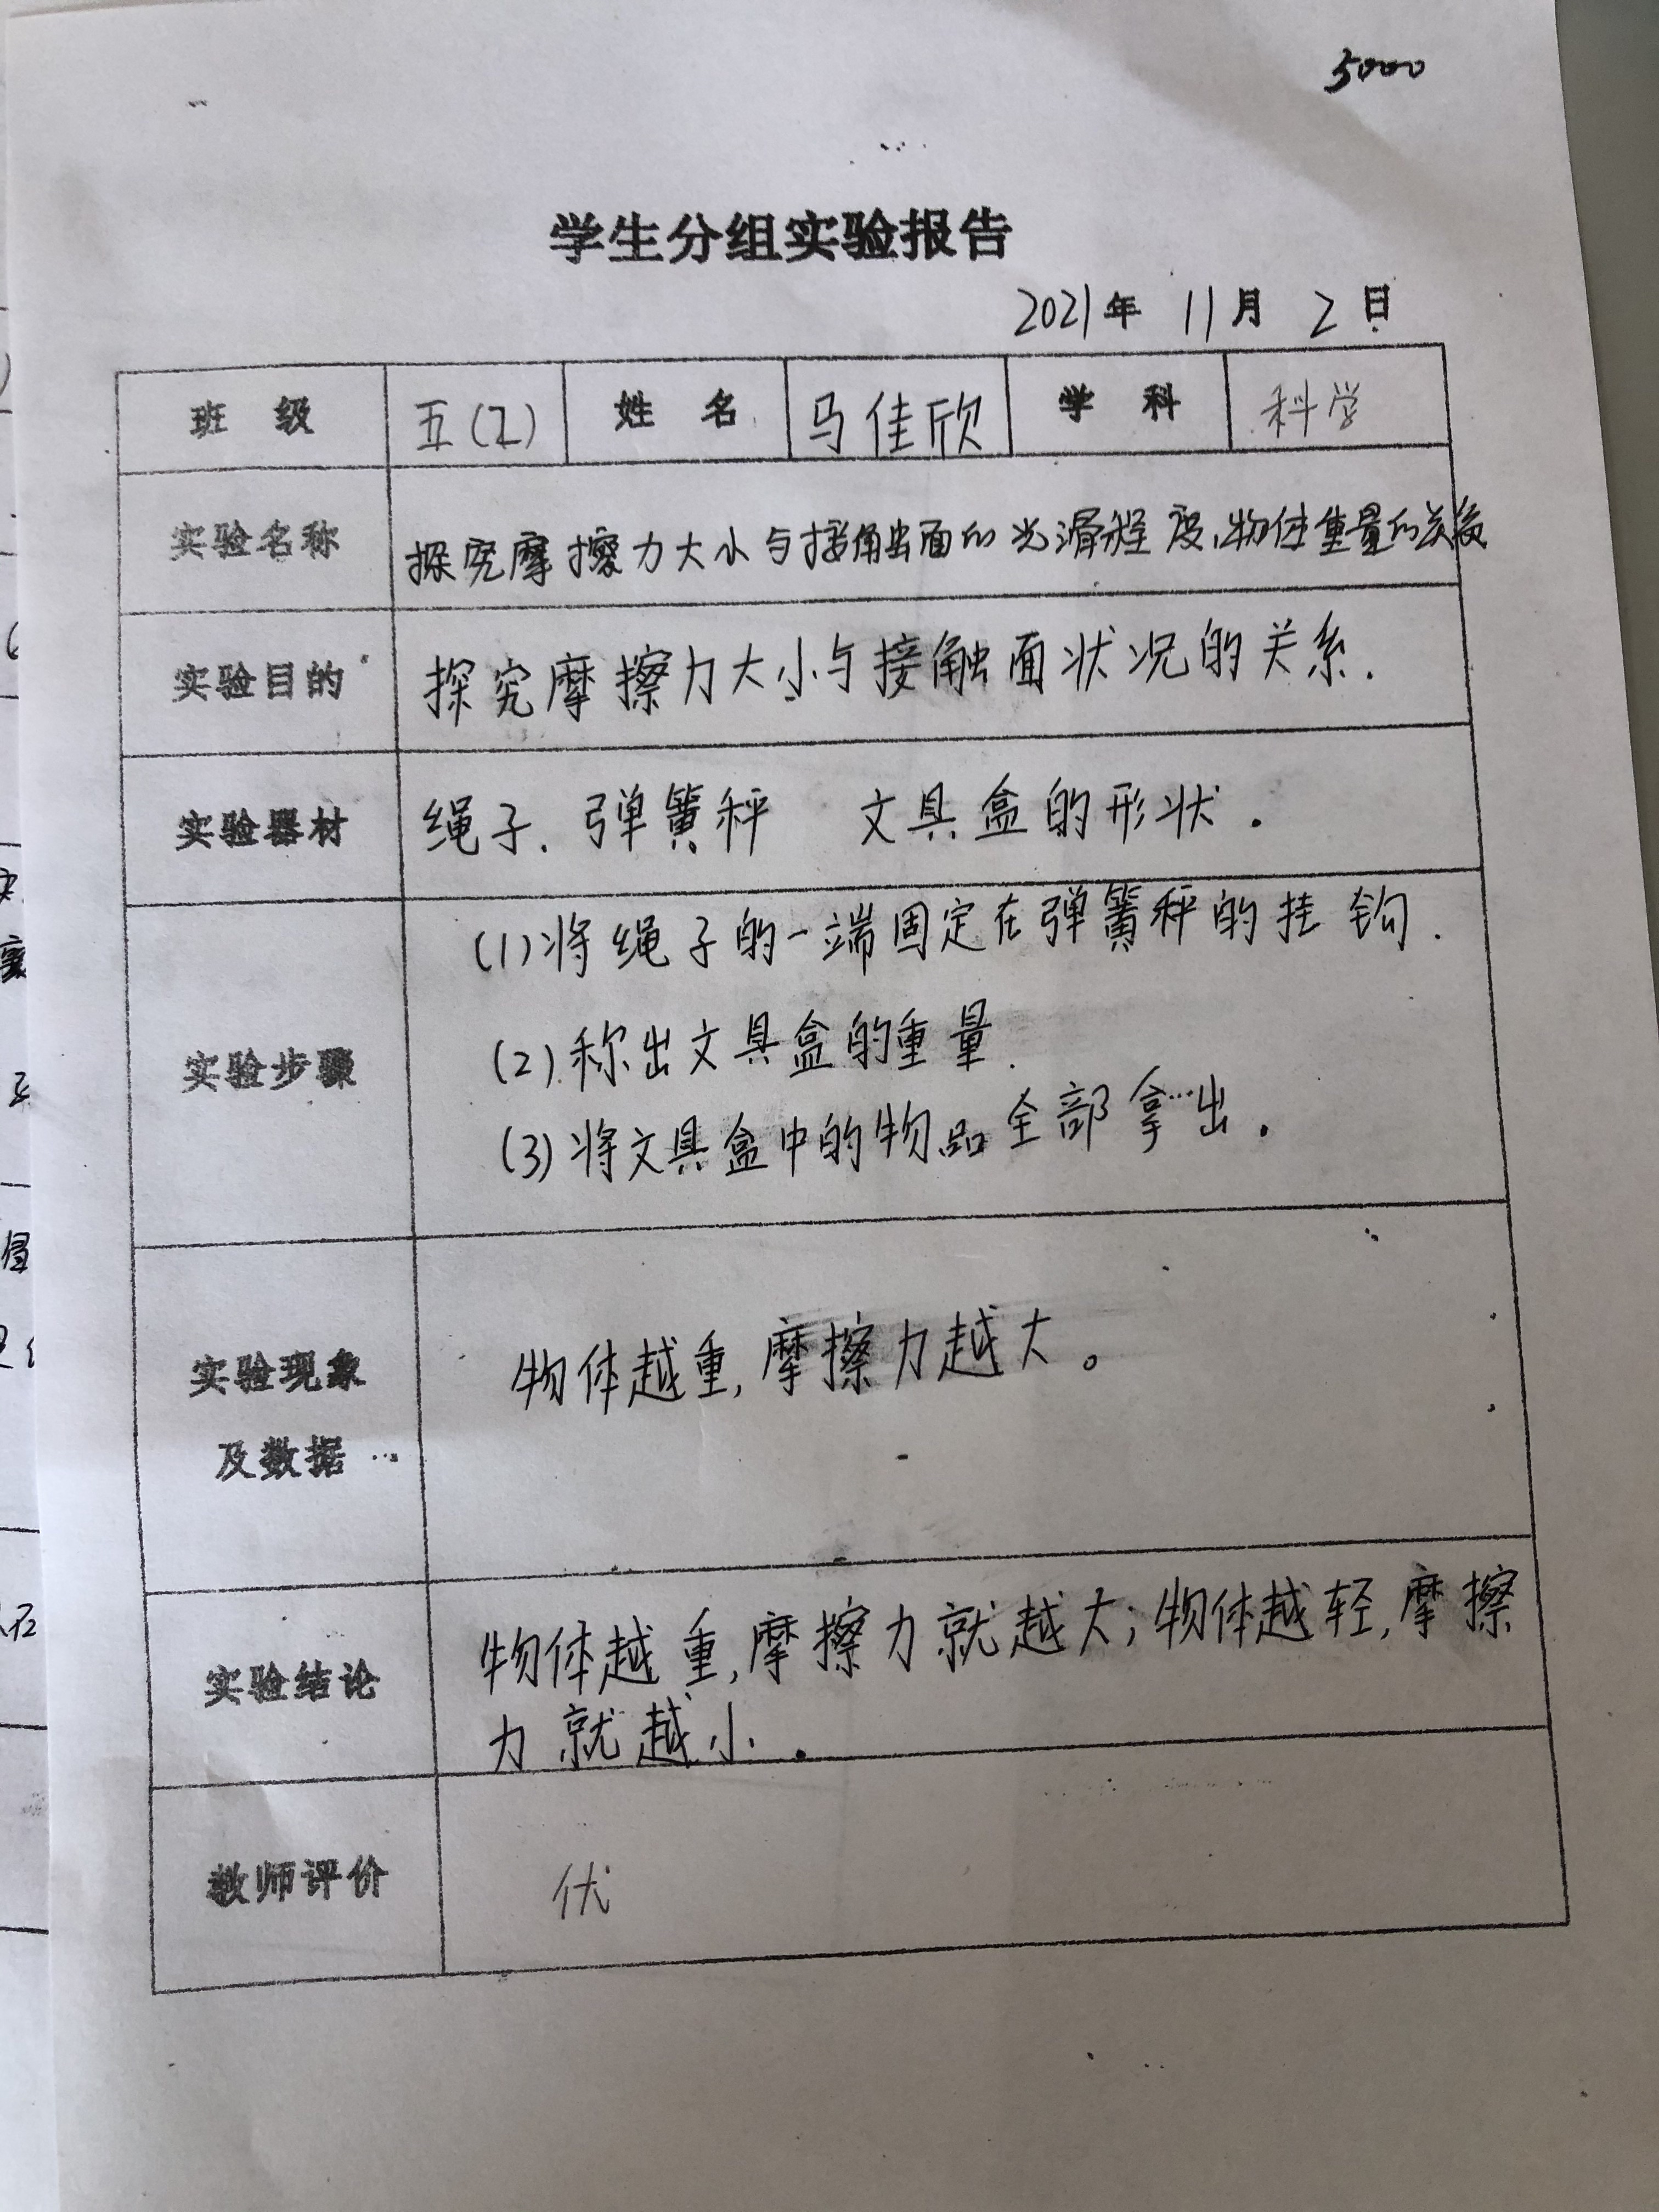 5000
学生分组实验报告
2021年 11月 2日
班 级 五(2) 姓 名 马佳欣 学 科 科学
实验名称 探究摩擦力大小与接触面的光滑程度、物体重量的关系
实验目的 探究摩擦力大小与接触面状况的关系.
实验器材 绳子、弹簧秤 文具盒的形状.
实验步骤
(1)将绳子的一端固定在弹簧秤的挂钩.
(2).称出文具盒的重量.
(3)将文具盒中的物品全部拿出.
实验现象
及数据
物体越重,摩擦力越大。
实验结论
物体越重,摩擦力就越大;物体越轻,摩擦
力就越小.
教师评价 优